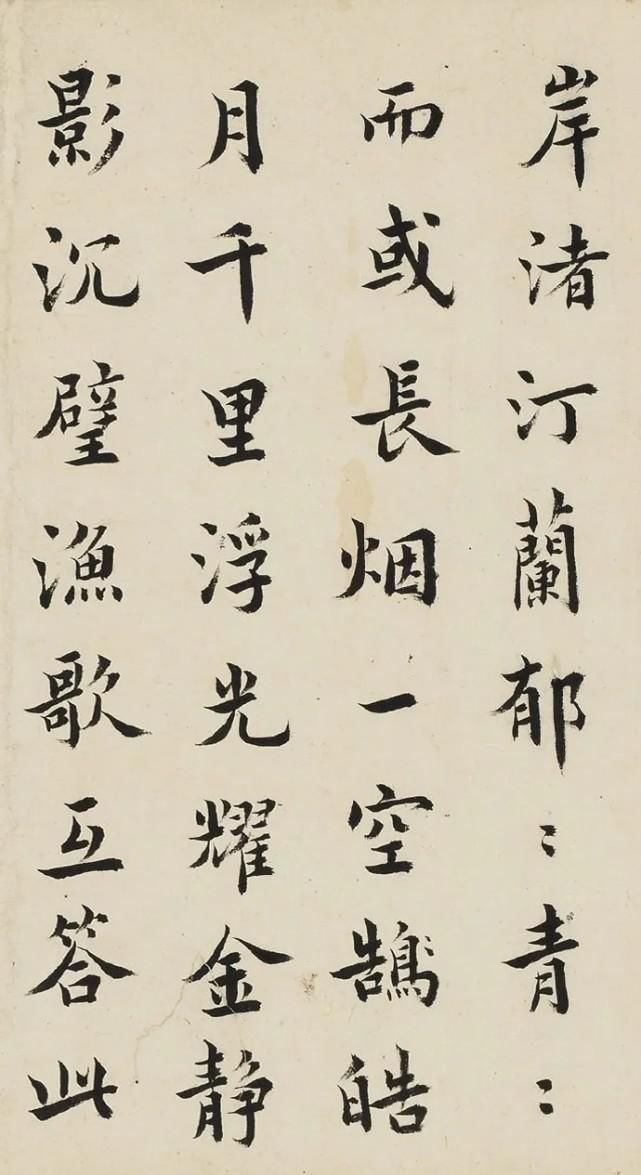 岸渚汀蘭郁〻青〻
而或長烟一空鵠皓
月千里浮光耀金静
影沉璧漁歌互答此